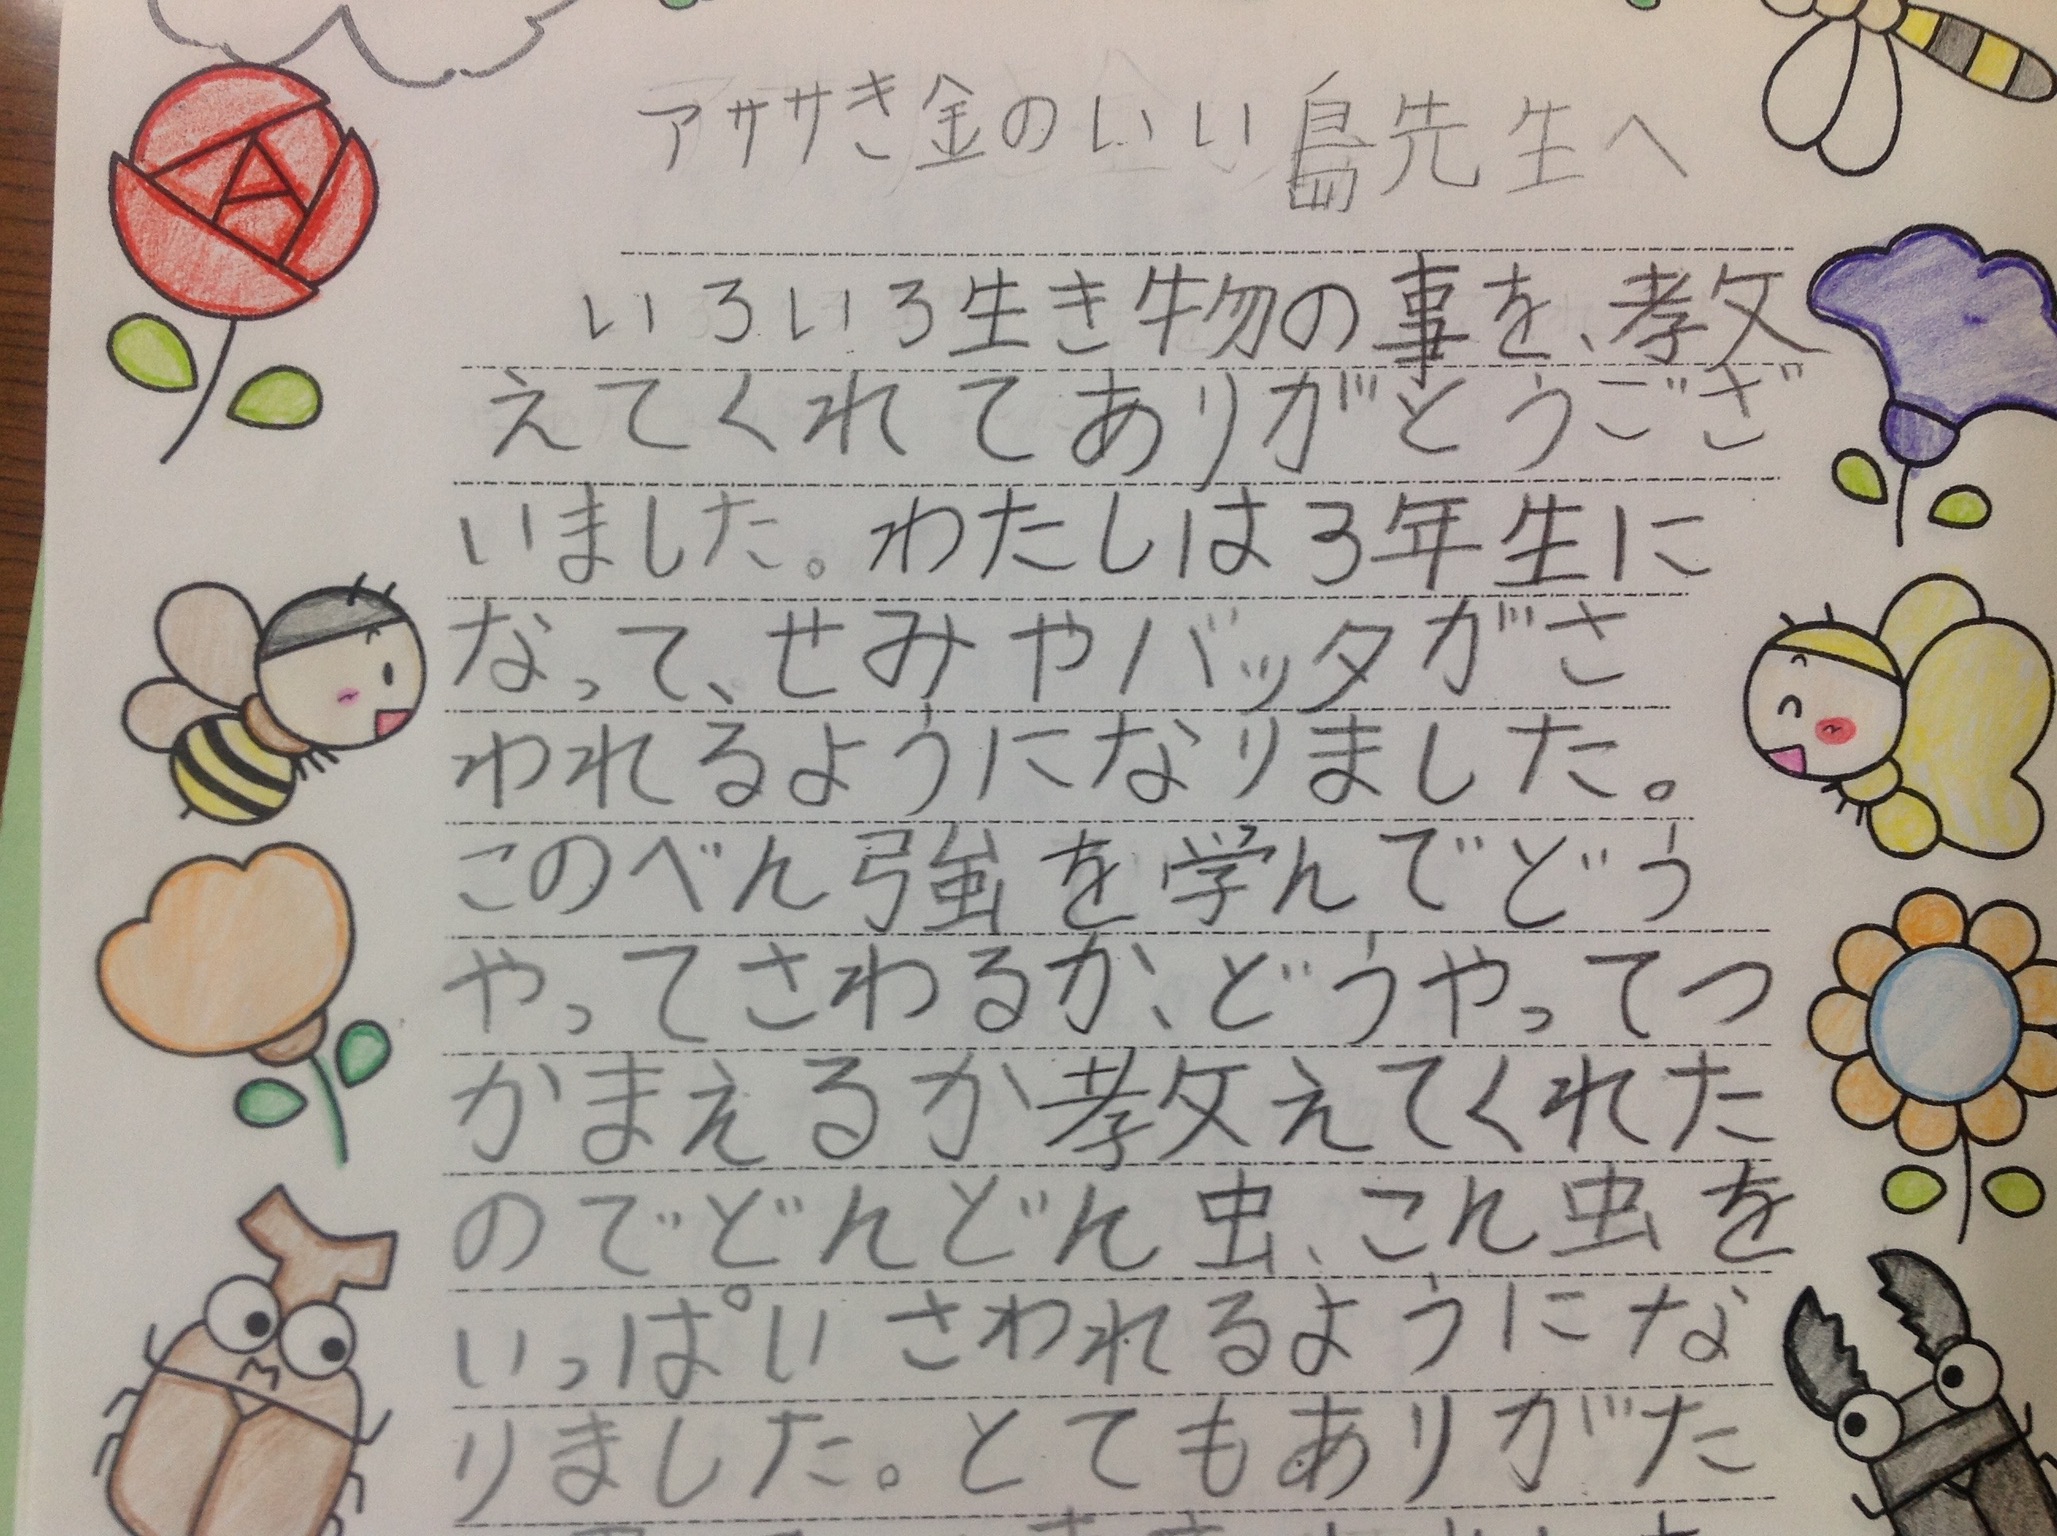 アササき金のいい島先生へ
いろいろ生き物の事を、教
えてくれてありがとうござ
いました。わたしは3年生に
なって、せみやバッタがさ
われるようになりました。
このべん強を学んでどう
やってさわるか、どうやってつ
かまえるか教えてくれた
のでどんどん虫、こん虫を
いっぱいさわれるようにな
りました。とてもありがた